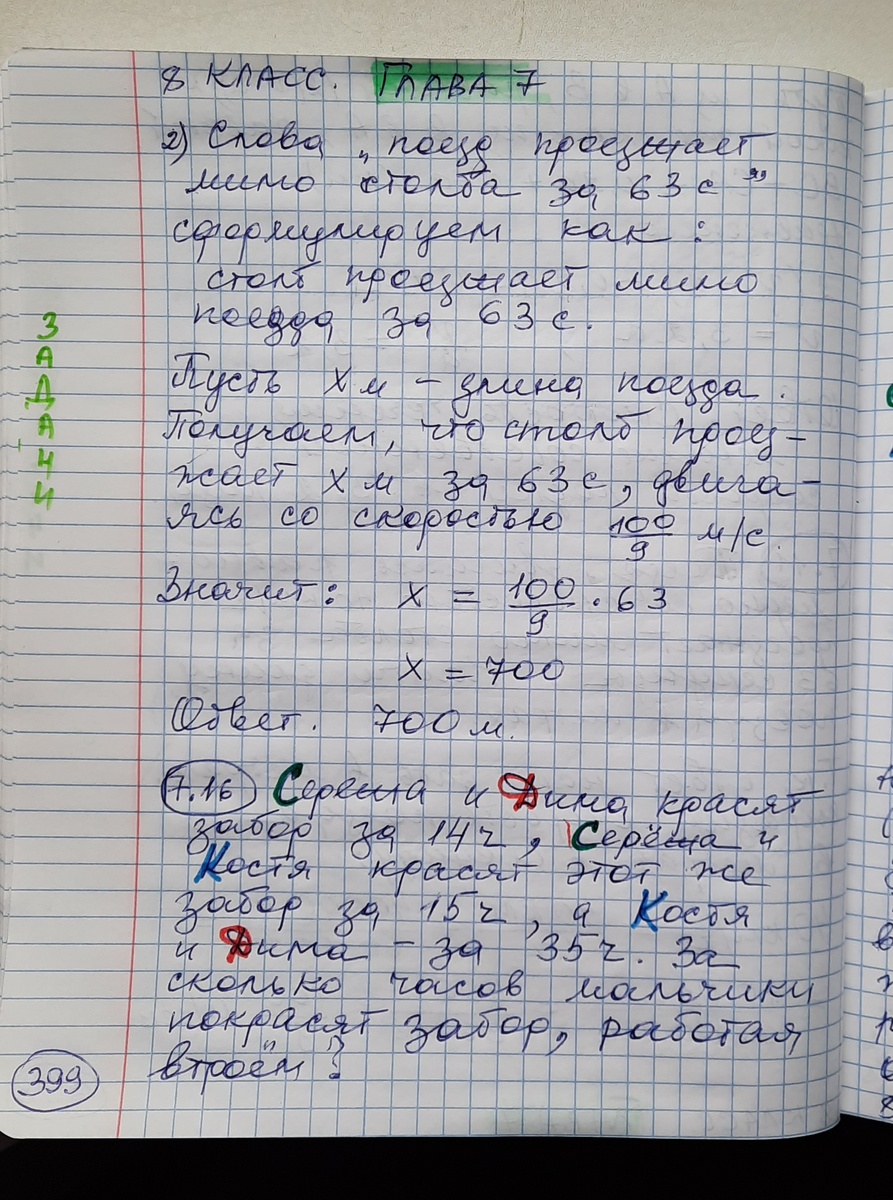 8 КЛАСС. ГЛАВА 7
2) Слова „поезд проезжает
мимо столба за 63 с”
сформулируем как:
столб проезжает мимо
поезда за 63 с.
ЗАДАЧИ
Пусть x м – длина поезда.
Получаем, что столб проез-
жает x м за 63 с, двига-
ясь со скоростью 100/9 м/с.
Значит: x = 100/9 · 63
x = 700
Ответ. 700 м.
7.16 Серёжа и Дима красят
забор за 14 ч, Серёжа и
Костя красят этот же
забор за 15 ч, а Костя
и Дима – за 35 ч. За
сколько часов мальчики
покрасят забор, работая
втроём?
399